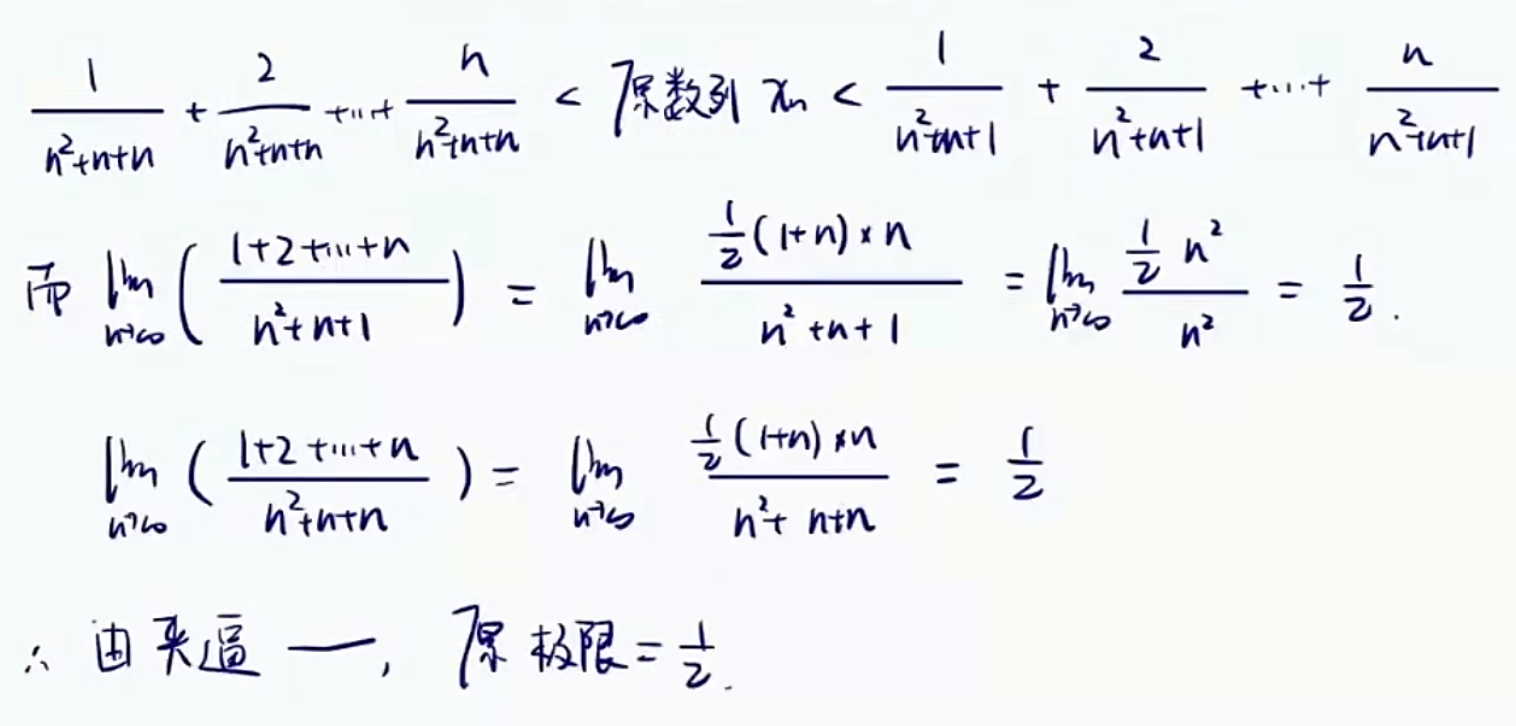 1/(n²+n+n) + 2/(n²+n+n) +…+ n/(n²+n+n) < 原数列 xₙ < 1/(n²+n+1) + 2/(n²+n+1) +…+ n/(n²+n+1)
而 lim n→∞ ( (1+2+…+n)/(n²+n+1) ) = lim n→∞ (½(1+n)×n)/(n²+n+1) = lim n→∞ (½ n²)/n² = ½.
lim n→∞ ( (1+2+…+n)/(n²+n+n) ) = lim n→∞ (½(1+n)×n)/(n²+n+n) = ½
∴ 由夹逼 —, 原极限 = ½.